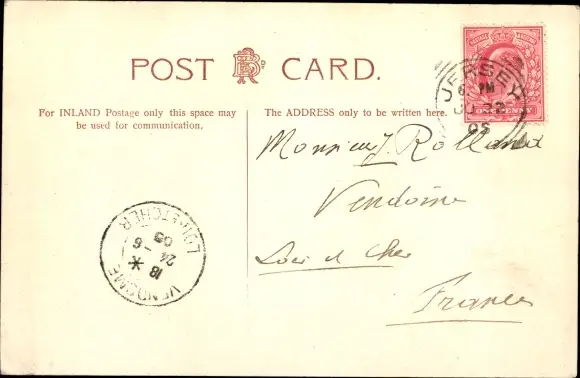 POST CARD.
For INLAND Postage only this space may
be used for communication.
The ADDRESS only to be written here.
POSTAGE REVENUE
ONE PENNY
JERSEY
6 PM
JU 22
05
Monsieur J. Rolland
Vendôme
Loir et Cher
France
VENDOME
18
24 - 6
05
LOIR-ET-CHER